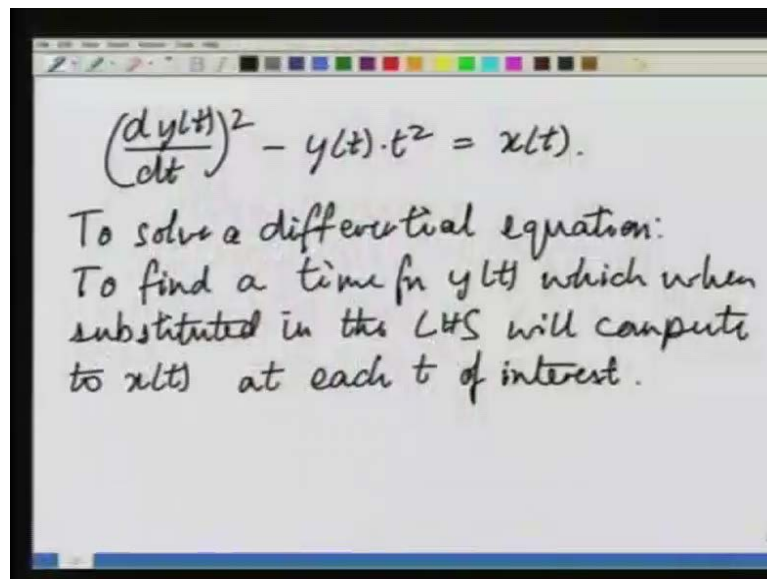 (dy(t)/dt)² - y(t)·t² = x(t).
To solve a differential equation:
To find a time fn y(t) which when
substituted in the LHS will compute
to x(t) at each t of interest.